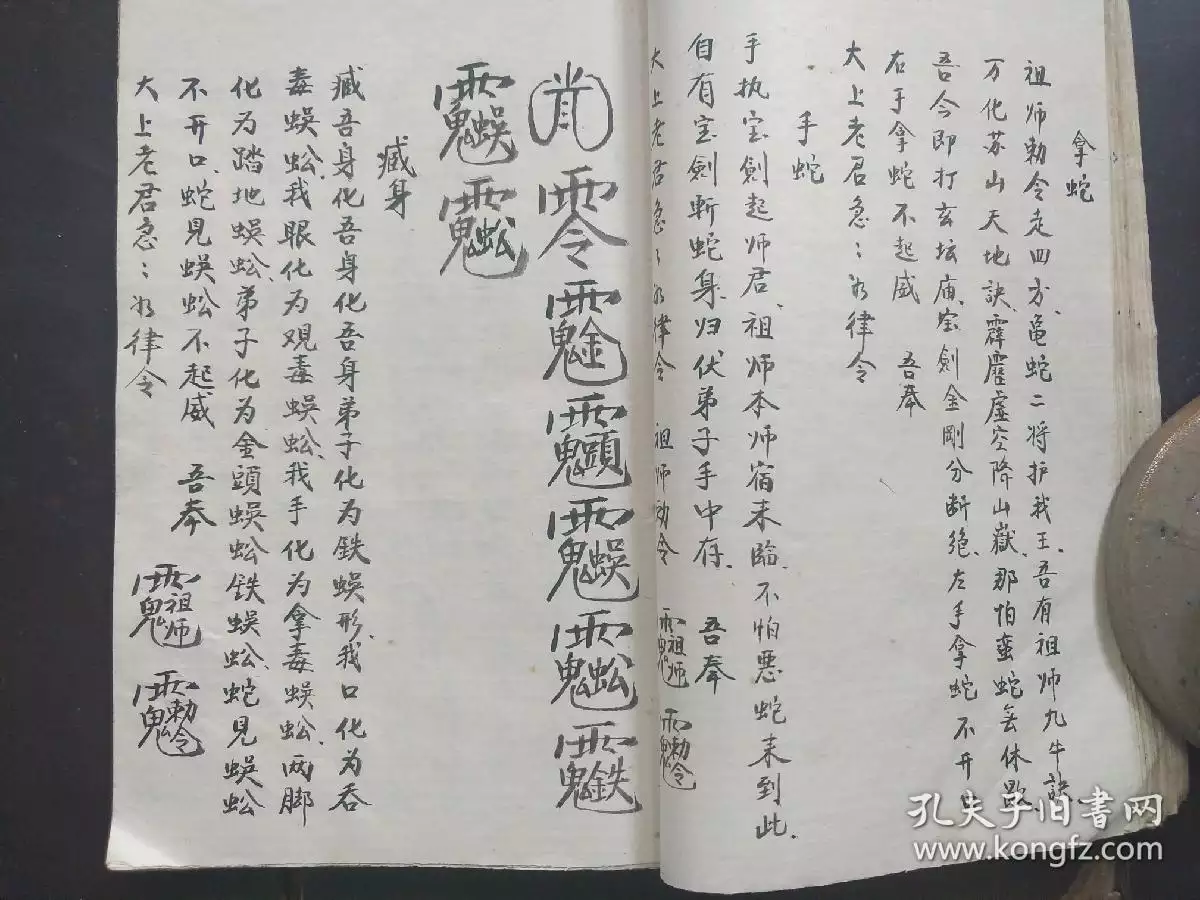 拿蛇
祖师勅令走四方、亀蛇二将护我王、吾有祖师九牛訣、
万化苏山天地訣、霹靂虚空降山嶽、那怕蛮蛇无休歇
吾今即打玄坛庙、宝劍金剛分断绝、左手拿蛇不开口
右手拿蛇不起威 吾奉
大上老君急〻如律令
手蛇
手执宝劍起师君、祖师本师宿来臨、不怕悪蛇来到此.
自有宝劍斬蛇身、归伏弟子手中存. 吾奉
大上老君急〻如律令 祖师勅令 祖师 勅令
零
臧身
臧吾身化吾身化吾身弟子化为鉄蜈形、我口化为吞
毒蜈蚣、我眼化为观毒蜈蚣、我手化为拿毒蜈蚣、两脚
化为踏地蜈蚣、弟子化为金頭蜈蚣铁蜈蚣、蛇見蜈蚣
不开口、蛇見蜈蚣不起威 吾奉
大上老君急〻如律令 祖师 勅令
孔夫子旧书网
www.kongfz.com